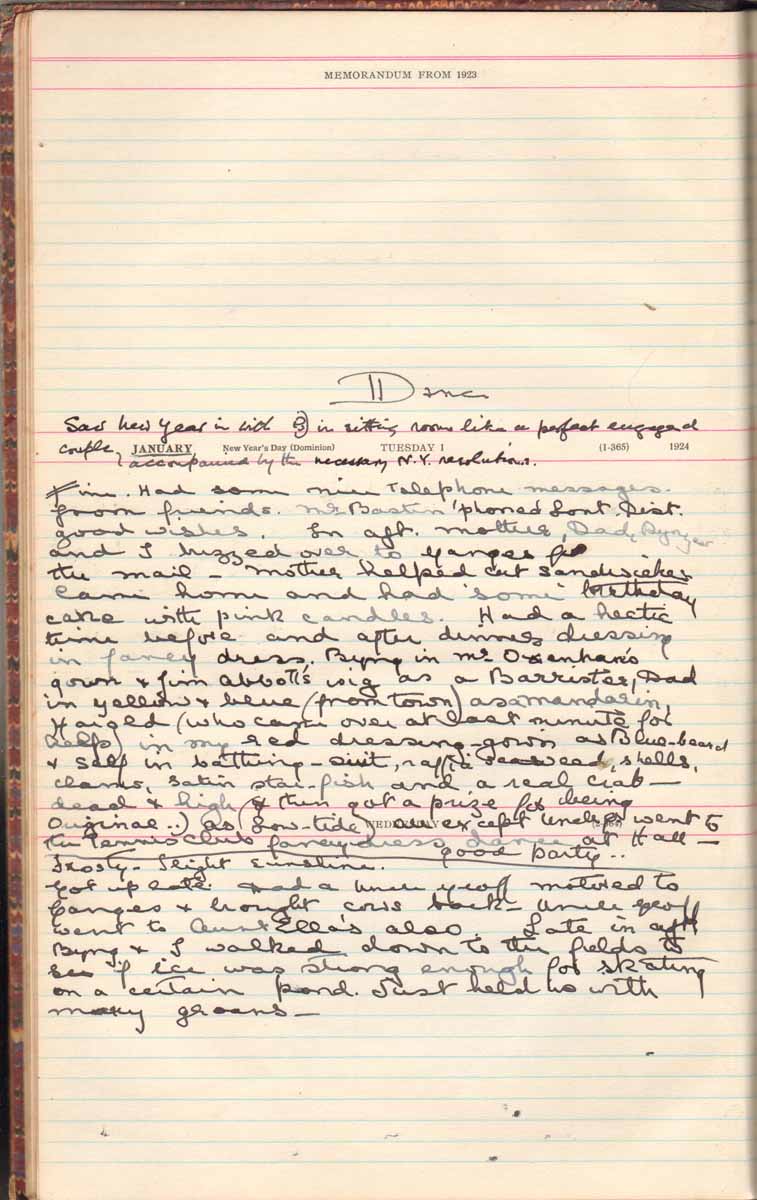 MEMORANDUM FROM 1923
Dance
Saw New Year in with B in sitting room like a perfect engaged
couple, JANUARY New Year's Day (Dominion) TUESDAY 1 (1-365) 1924
accompanied by the necessary N.Y. resolutions.
Fine. Had some nice Telephone messages
from friends. Mr Bastin 'phoned Long Dist.
good wishes. In aft. mother, Dad,
and I buzzed over to Ganges for
the mail – Mother helped cut sandwiches
Came home and had 'some' birthday
cake with pink candles. Had a hectic
time before and after dinner dressing
in fancy dress. Byng in Mr Oxenham's
gown & Jim Abbott's wig as a Barrister, Dad
in yellow & blue (from town) as a mandarin,
Haigld (who came over at last minute for
help) in my red dressing-gown as Blue-beard
& Self in bathing-suit, raffia seaweed, shells,
clams, satin star-fish and a real crab –
dead & high (& then got a prize for being
Original..) as (Low-tide) all except Uncles went to
WEDNESDAY 2 (2-365)
the Tennis Club fancy dress dance at Hall –
good party..
Frosty – Slight sunshine.
Got up late. Dad & Uncle Geoff motored to
Ganges & brought cows back – Uncle Geoff
went to Aunt Ella's also. Late in aft
Byng & I walked down to the fields to
see if ice was strong enough for skating
on a certain pond. Just held us with
many groans –